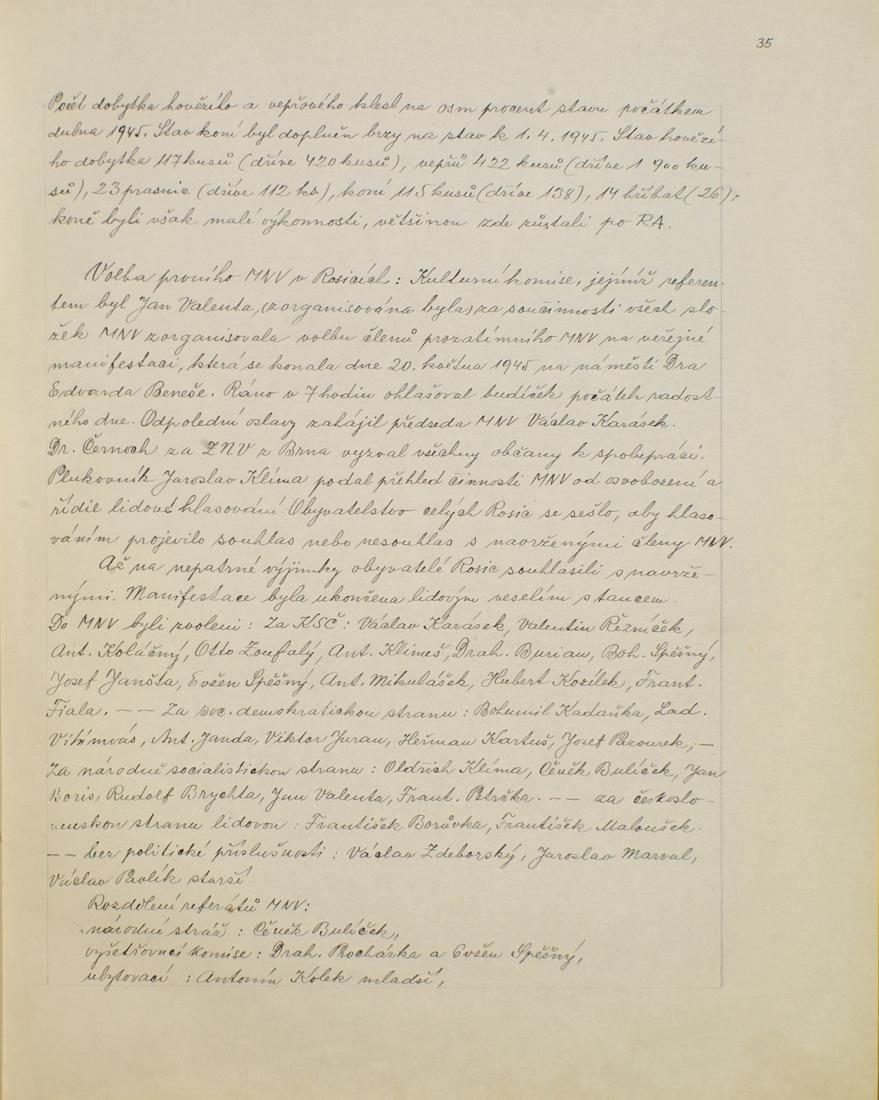 35
Počet dobytka hovězího a vepřového klesl na osm procent stavu počátkem
dubna 1945. Stav koní byl doplněn brzy na stav k 1. 4. 1945. Stav hovězí-
ho dobytka 117 kusů (dříve 420 kusů), vepřů 422 kusů (dříve 1 900 ku-
sů), 23 prasnic (dříve 112 ks), koní 115 kusů (dříve 138), 14 hříbat (26);
koně byli však malé výkonnosti, většinou zde zůstali po RA.
Volba prvního MNV v Rosicích: Kulturní komise, jejímž referen-
tem byl Jan Valenta, (zorganisována byla) za součinnosti všech slo-
žek MNV zorganisovala volbu členů prozatímního MNV na veřejné
manifestaci, která se konala dne 20. května 1945 na náměstí Dra
Edvarda Beneše. Ráno v 7 hodin ohlašoval budíček počátek radost-
ného dne. Odpolední oslavy zahájil předseda MNV Václav Karásek.
Dr. Černoch za ZNV z Brna vyzval všechny občany k spolupráci.
Plukovník Jaroslav Klíma podal přehled činnosti MNV od osvobození a
řídil lidové hlasování. Obyvatelstvo celých Rosic se sešlo, aby hlaso-
váním projevilo souhlas nebo nesouhlas s navrženými členy MNV.
Až na nepatrné výjimky obyvatelé Rosic souhlasili s navrže-
nými. Manifestace byla ukončena lidovým veselím s tancem.
Do MNV byli zvoleni: Za KSČ: Václav Karásek, Valentin Řezníček,
Ant. Koláčný, Otto Zoufalý, Ant. Klimeš, Drah. Burian, Boh. Spěšný,
Josef Janšta, Evžen Spěšný, Ant. Mikulášek, Hubert Kozílek, Frant.
Fiala. — — Za soc. demokratickou stranu: Bohumil Kadaňka, Lad.
Ant. Janda, Viktor Juran, Heřman Kartuš, Josef Pazourek, —
Za národně socialistickou stranu: Oldřich Klíma, Čeněk Bulíček, Jan
Boris, Rudolf Brychta, Jan Valenta, Frant. Petrčka. — — za českoslo-
venskou stranu lidovou: František Borůvka, František Maloušek.
— — bez politické příslušnosti: Václav Zdeborský, Jaroslav Marval,
Václav Pavlík starší.
Rozdělení referátů MNV:
národní stráž: Čeněk Bulíček,
vyšetřovací komise: Drah. Procházka a Evžen Spěšný,
ubytovací: Antonín Kolek mladší,